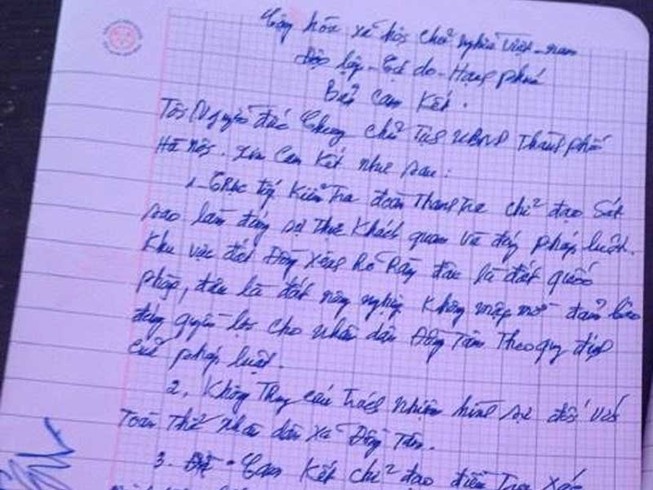 Cộng hòa xã hội chủ nghĩa Việt-nam
Độc lập-Tự do-Hạnh phúc
Bản Cam Kết.
Tôi Nguyễn đức Chung chủ tịch UBND Thành phố
Hà nội. xin cam kết như sau:
1-Trực tiếp Kiểm Tra đoàn Thanh tra chỉ đạo Sát
sao làm đúng sự thực Khách quan và đúng pháp luật.
Khu vực đất Đồng Xênh Rõ Ràng đâu là đất quốc
phòng, đâu là đất nông nghiệp Không mập mờ đảm bảo
đúng quyền lợi cho nhân dân Đồng Tâm Theo quy định
của pháp luật.
2, Không Truy cứu Trách nhiệm hình sự đối với
Toàn Thể nhân dân xã Đồng Tâm.
3. Cam Kết chỉ đạo điều Tra Xác